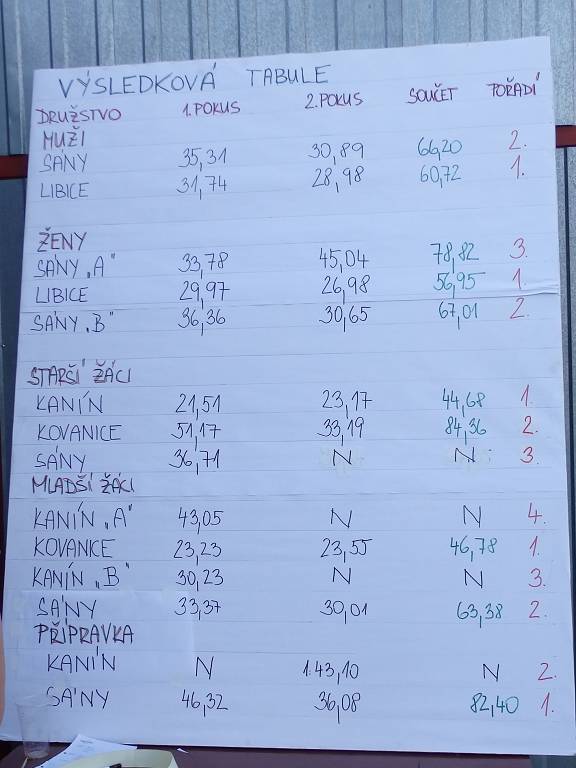 VÝSLEDKOVÁ TABULE
DRUŽSTVO 1.POKUS 2.POKUS SOUČET POŘADÍ
MUŽI
SÁNY 35,31 30,89 66,20 2.
LIBICE 31,74 28,98 60,72 1.
ŽENY
SÁNY „A" 33,78 45,04 78,82 3.
LIBICE 29,97 26,98 56,95 1.
SÁNY „B" 36,36 30,65 67,01 2.
STARŠÍ ŽÁCI
KANÍN 21,51 23,17 44,68 1.
KOVANICE 51,17 33,19 84,36 2.
SÁNY 36,71 N N 3.
MLADŠÍ ŽÁCI
KANÍN „A" 43,05 N N 4.
KOVANICE 23,23 23,55 46,78 1.
KANÍN „B" 30,23 N N 3.
SÁNY 33,37 30,01 63,38 2.
PŘÍPRAVKA
KANÍN N 1.43,10 N 2.
SÁNY 46,32 36,08 82,40 1.